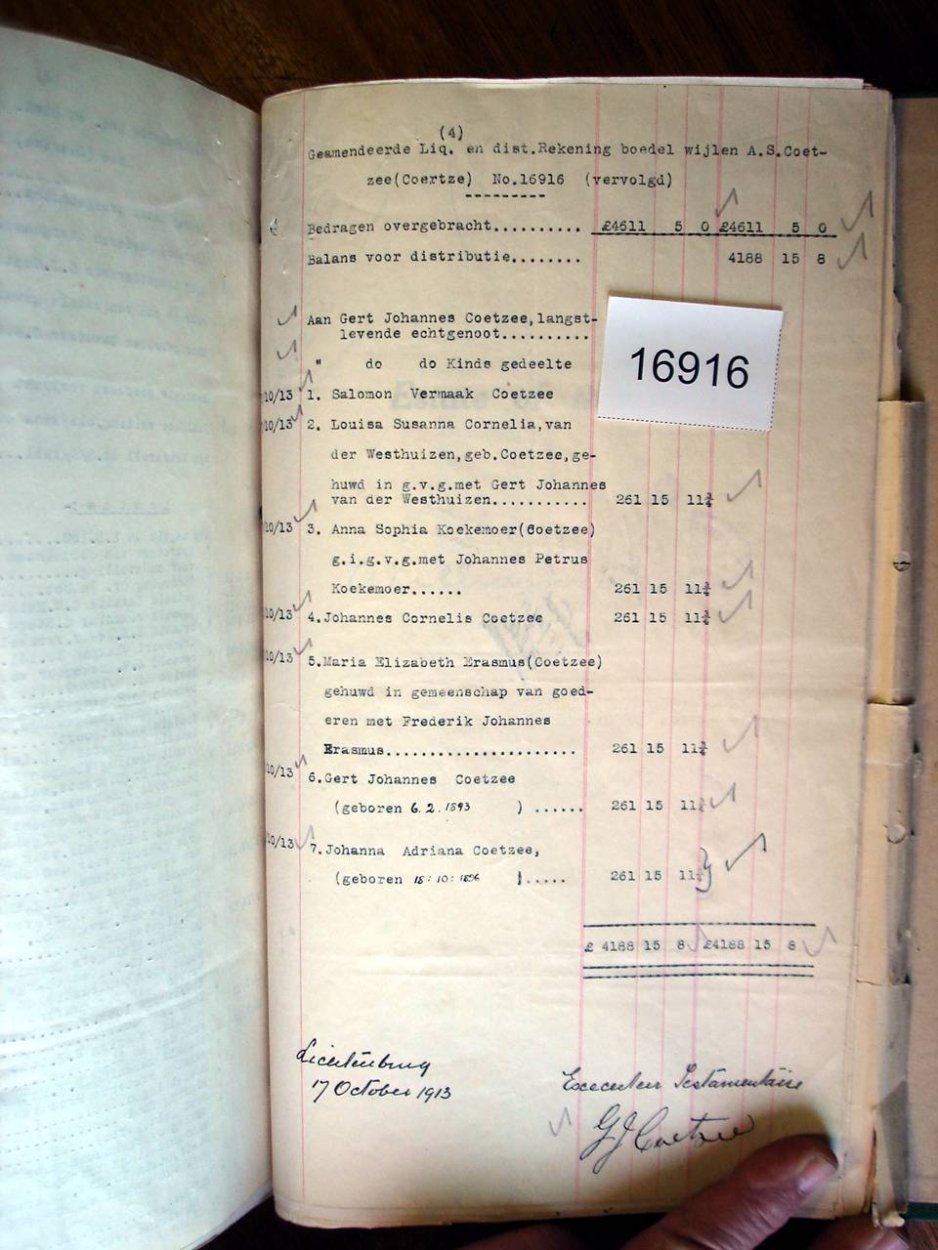 (4)
Geamendeerde Liq. en dist.Rekening boedel wijlen A.S.Coet-
zee(Coertze) No.16916 (vervolgd)
Bedragen overgebracht.......... £4611 5 0 £4611 5 0
Balans voor distributie........ 4188 15 8
Aan Gert Johannes Coetzee,langst-
levende echtgenoot..........
16916
" do do Kinds gedeelte
10/13 1. Salomon Vermaak Coetzee
10/13 2. Louisa Susanna Cornelia,van
der Westhuizen,geb.Coetzee,ge-
huwd in g.v.g.met Gert Johannes
van der Westhuizen........... 261 15 11¾
10/13 3. Anna Sophia Koekemoer(Coetzee)
g.i.g.v.g.met Johannes Petrus
Koekemoer...... 261 15 11¾
10/13 4.Johannes Cornelis Coetzee 261 15 11¾
10/13 5.Maria Elizabeth Erasmus(Coetzee)
gehuwd in gemeenschap van goed-
eren met Frederik Johannes
Erasmus...................... 261 15 11¾
10/13 6.Gert Johannes Coetzee
(geboren 6.2.1893 ) ...... 261 15 11¾
10/13 7.Johanna Adriana Coetzee,
(geboren 18:10:1896 )..... 261 15 11¾
£ 4188 15 8 £4188 15 8
Lichtenburg
17 October 1913
Executeur Testamentaire
GJ Coetzee